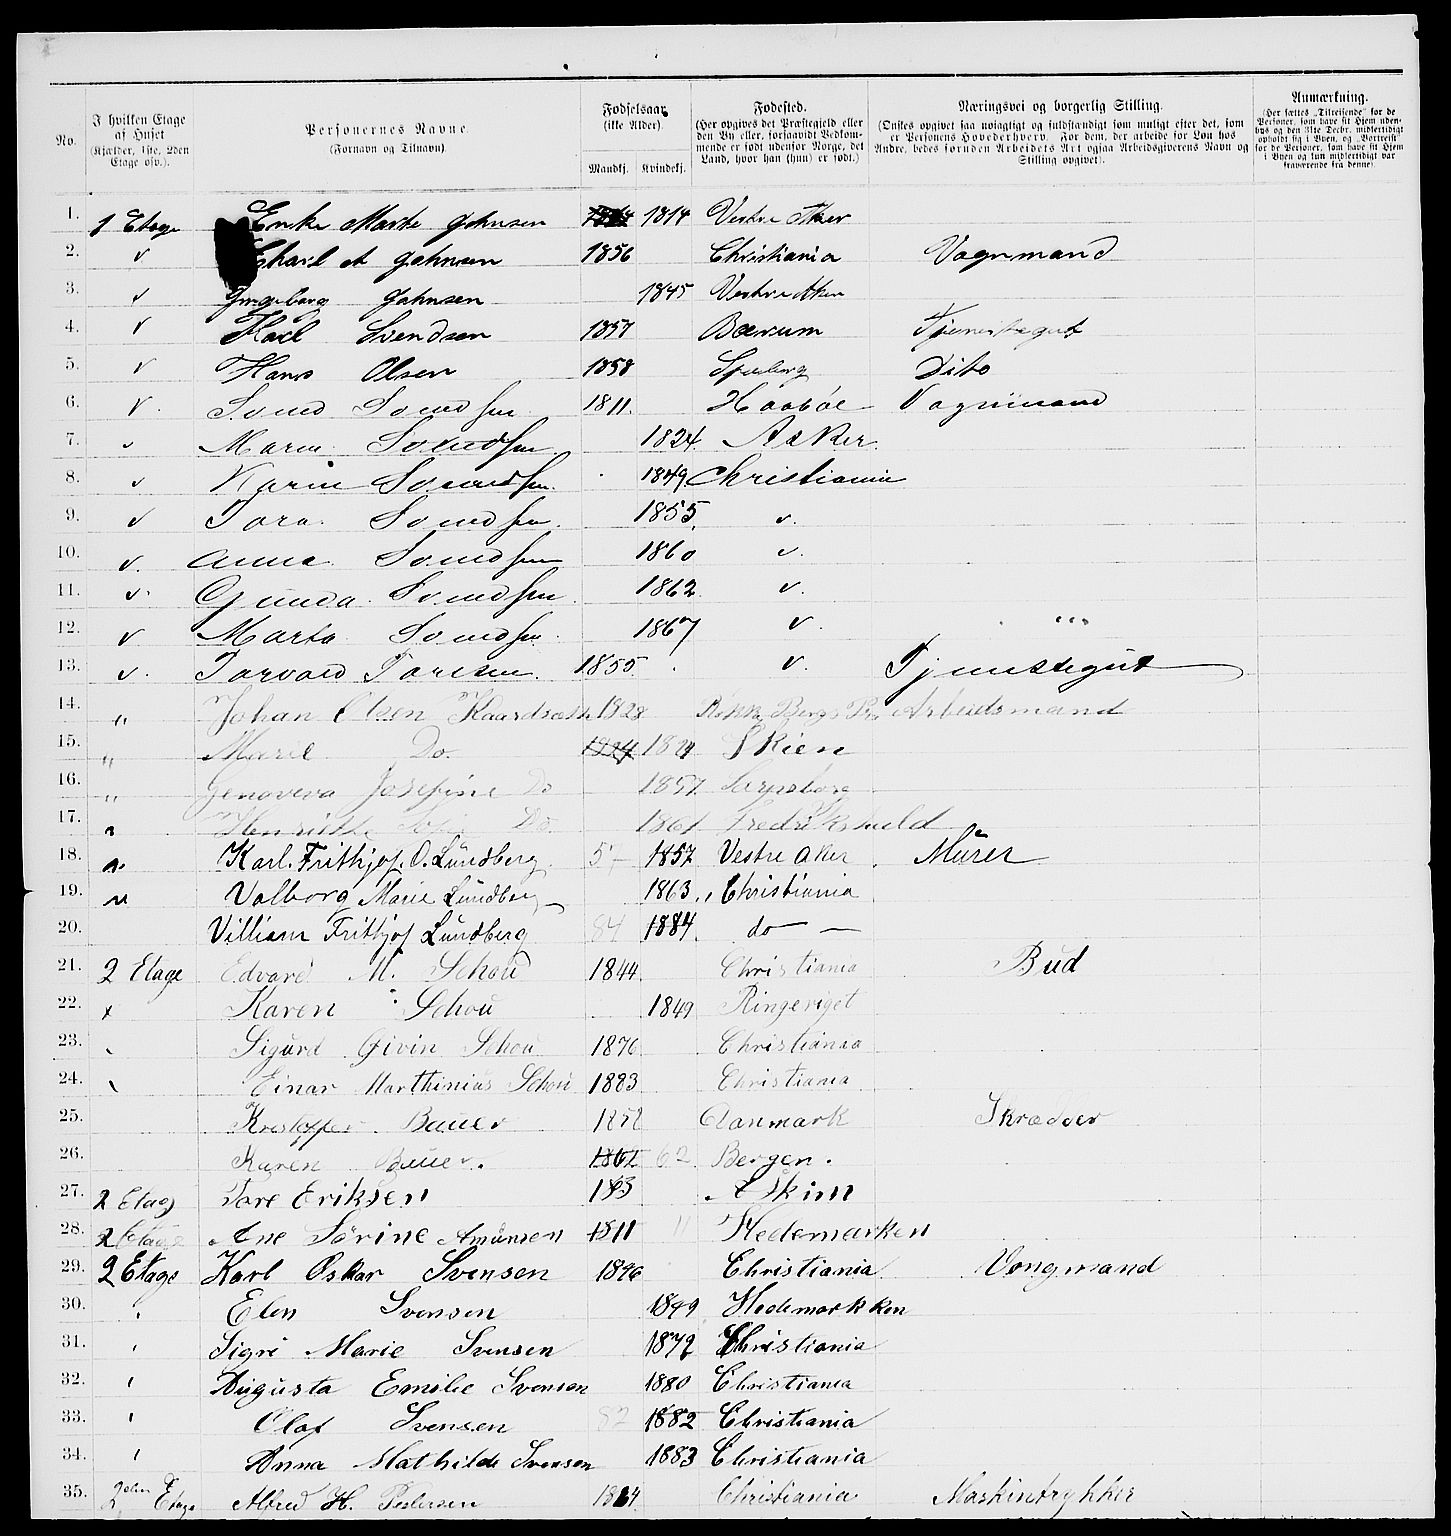 No.
I hvilken Etage af Huset (Kjælder, 1ste, 2den Etage osv.).
Personernes Navne (Fornavn og Tilnavn).
Fødselsaar (ikke Alder).
Mandkj. Kvindekj.
Fødested. (Her opgives det Præstegjeld eller den By eller, forsaavidt Vedkommende er født udenfor Norge, det Land, hvor han (hun) er født.)
Næringsvei og borgerlig Stilling. (Ønskes opgivet saa nøiagtigt og fuldstændigt som muligt efter det, som er Personens Hovederhverv. For dem, der arbeide for Løn hos Andre, bedes foruden Arbeidets Art ogsaa Arbeidsgiverens Navn og Stilling opgivet).
Anmærkning. (Her sættes „Tilreisende“ for de Personer, som have sit Hjem udenbys og den 31te Decbr. midlertidigt opholdt sig i Byen, og „Bortreist“ for de Personer, som have sit Hjem i Byen og kun midlertidigt var fraværende fra denne).
1. 1 Etage Enke Marte Johnsen 1814 Vestre Aker
2. v A Johnsen 1856 Christiania Vognmand
3. v Ingeborg Johnsen 1845 Vestre Aker
4. v Karl Svendsen 1857 Bærum Tjenestegut
5. v Hans Olsen 1858 Dito
6. v. Svend Svendsen 1811. Haabøl Vognmand
7. v Maren Svendsen 1824. Asker.
8. v Karin Svendsen. 1849. Christiania
9. v Tora. Svendsen. 1855. v.
10. v. Anna. Svendsen 1860 v.
11. v. Gunda. Svendsen. 1862. v.
12. v Marta Svendsen. 1867 v.
13. v. Torvald Toresen. 1855. v. Tjenestegut
14. „ Johan Olsen 1828 Arbeidsmand
15. „ Marie Do. Skien
16. „ Genoveva Josefine Do 1857 Sarpsborg
17. „ Henriette Sofie Do. 1861 Fredrikshald
18. „ Karl. Frithjof. O. Lundberg 57 1857 Vestre Aker. Murer
19. „ Valborg Marie Lundberg 1863. Christiania
20. Villiam Frithjof Lundberg 84 1884. do —
21. 2 Etage Edvard M. Schou 1844. Christiania Bud
22. x Karen Schou 1849 Ringeriget
23. Sigurd Schou 1876 Christiania
24. Einar Marthinius Schou 1883 Christiania
25. Kristoffer Bauer 1852 Danmark Skrædder
26. Karen Bauer. 1862 62 Bergen.
27. 2 Etag Tore Eriksen Askim
28. 2 Etage Ane Sørine Amunsen 1811 11 Hedemarken
29. 2 Etage Karl Oskar Svensen 1846 Christiania Vongmand
30. Elen Svensen 1849 Hedemarkken
31. Sigri Marie Svensen 1872 Christiania
32. Augusta Emilie Svensen 1880 Christiania
33. Olaf Svensen 82 1882 Christiania
34. Anna Mathilde Svensen 1883 Christiania
35. 2den Etage Alfred H. Pedersen Christiania Maskintrykker